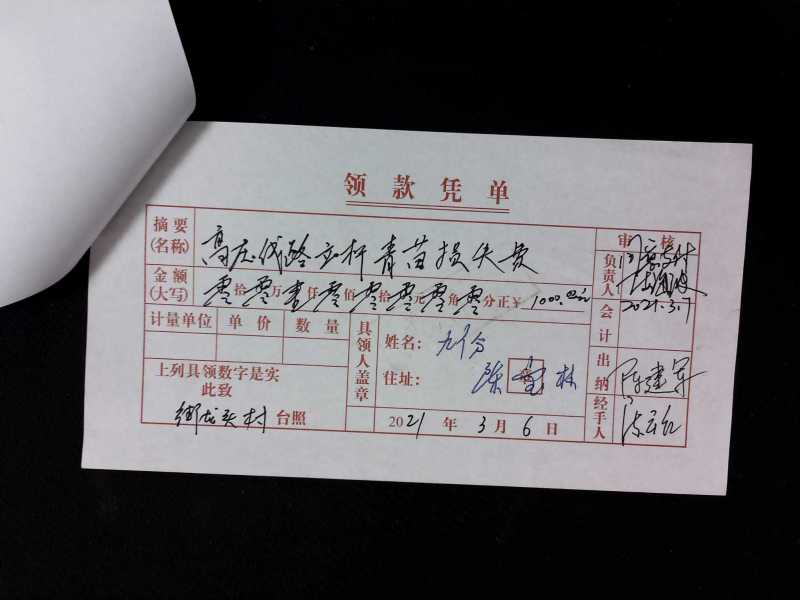 领款凭单
摘要(名称) 高压线路立杆青苗损失费
金额(大写) 零拾零万壹仟零佰零拾零元零角零分正¥ 1000.00元
计量单位 单价 数量
上列具领数字是实
此致
龙头村 台照
具领人盖章
姓名:
住址: 陈 林
2021年3月6日
审核
负责人
2021.3.7
会计
出纳 陈建军
经手人